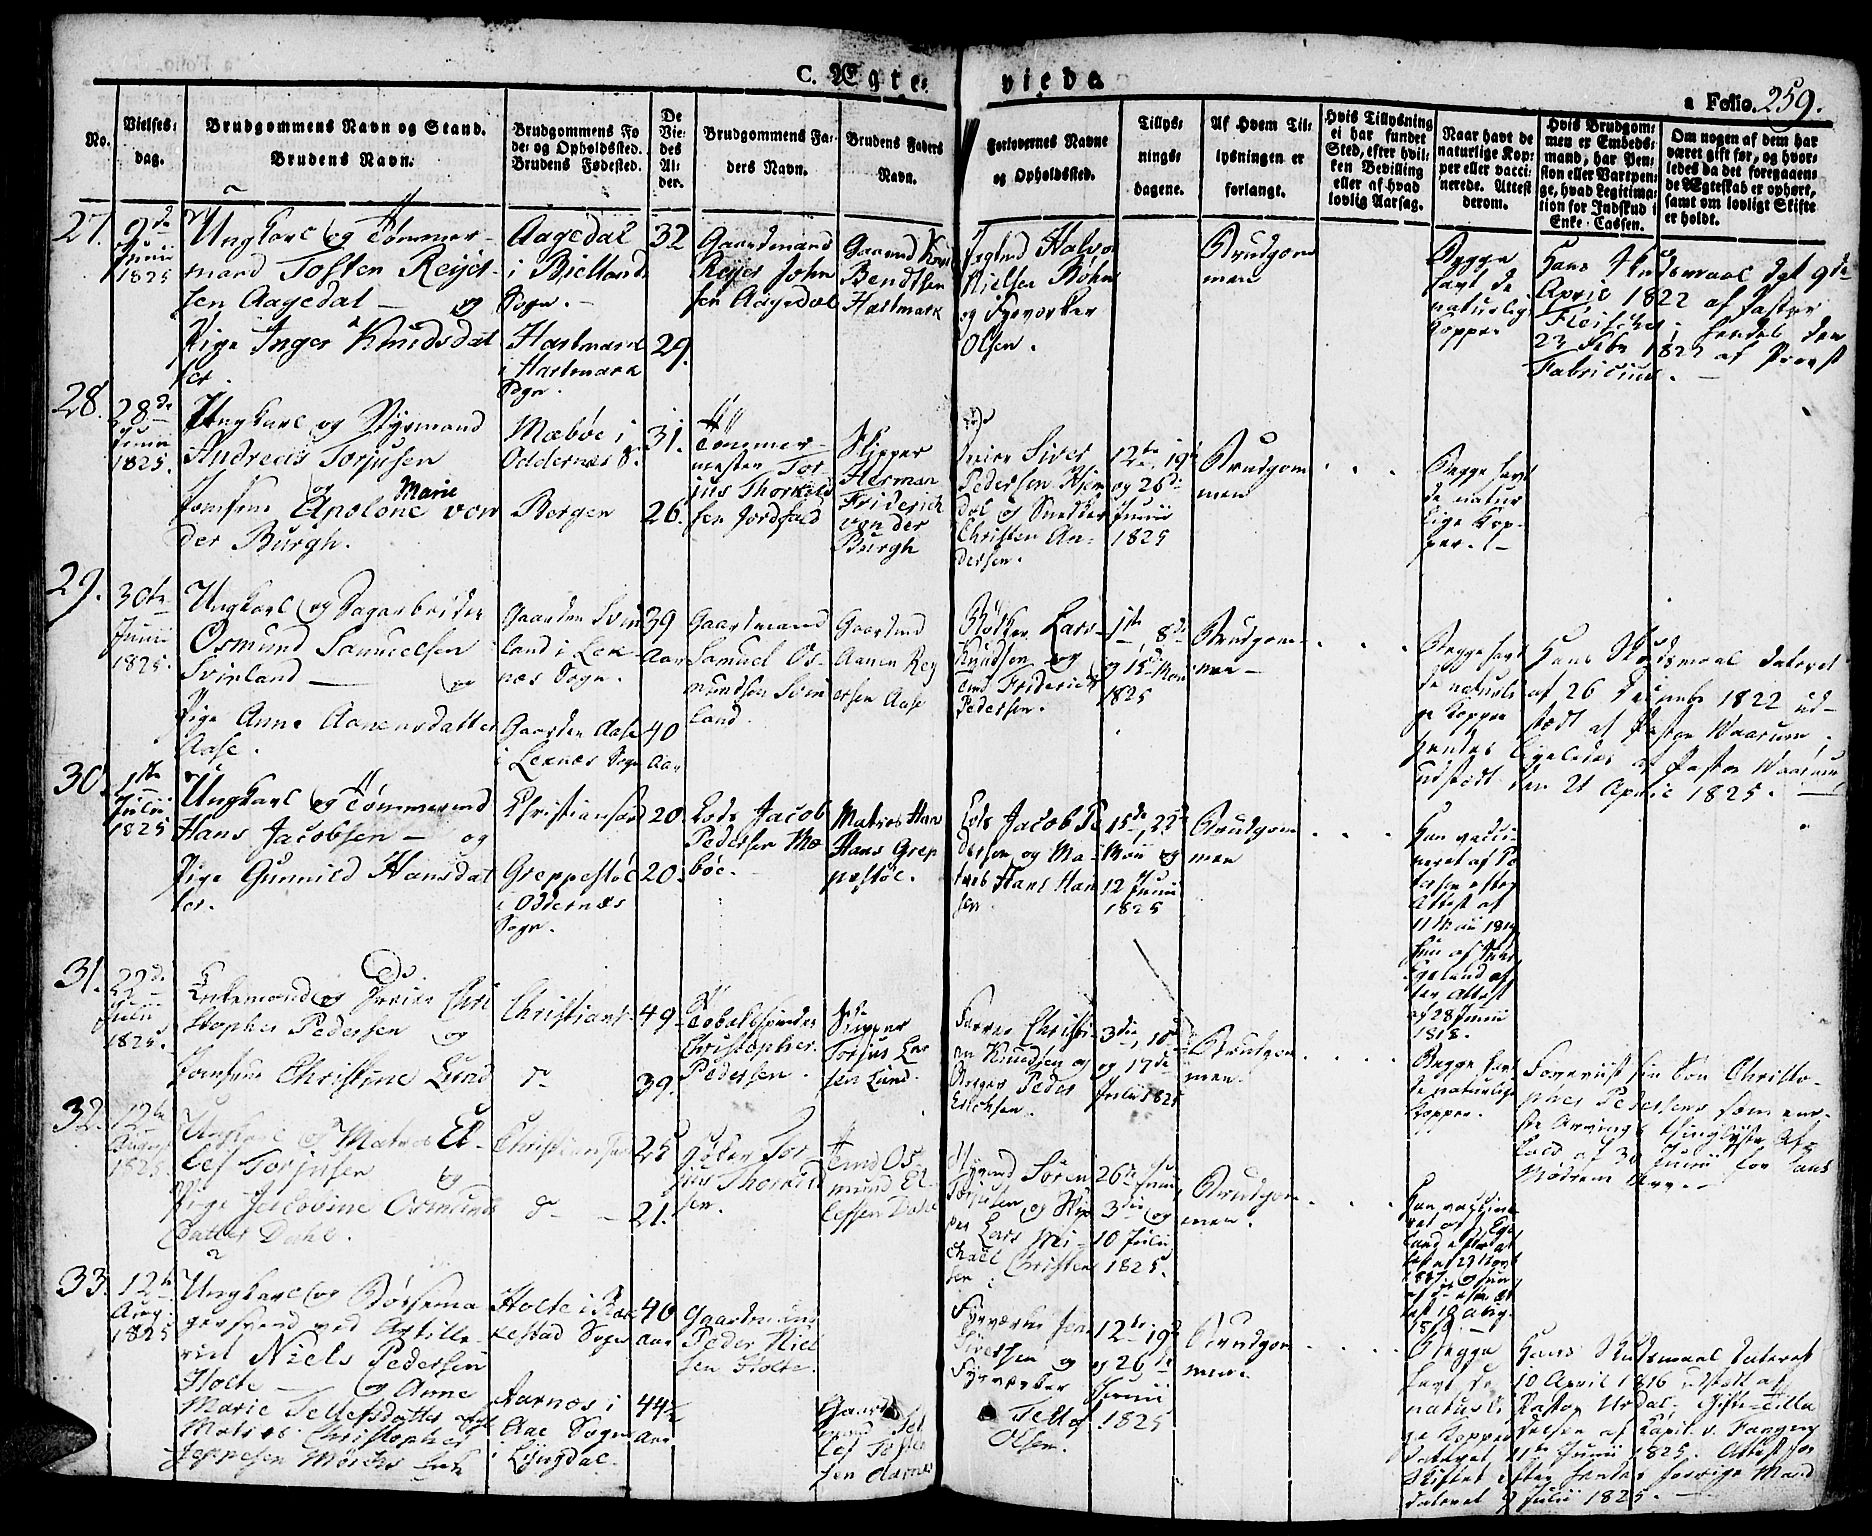 C. Ægte- viede.
a Folio. 259.
No.
Vielses-
dag.
Brudgommens Navn og Stand.
Brudens Navn.
Brudgommens Fø-
de- og Opholdssted.
Brudens Fødested.
De
Vie-
des
Al-
der.
Brudgommens Fa-
ders Navn.
Brudens Faders
Navn.
Forlovernes Navne
og Opholdssted.
Tillys-
nings-
dagene.
Af Hvem Til-
lysningen er
forlangt.
Hvis Tillysning
ei har fundet
Sted, efter hvil-
ken Bevilling
eller af hvad
lovlig Aarsag.
Naar havt de
naturlige Kop-
per eller vacci-
nerede. Attest
derom.
Hvis Brudgom-
men er Embeds-
mand, har Pen-
sion eller Vartpen-
ge, hvad Legitima-
tion for Indskud i
Enke-Cassen.
Om nogen af dem har
været gift før, og hvor-
ledes da det foregaaen-
de Ægteskab er ophørt,
samt om lovligt Skifte
er holdt.
27.
2de
Junii
1825
Ungkarl og Tømmer-
mand Tosten Reijer-
sen Aagedal — og
Pige Inger Knudsdat
ter.
Aagedal
i Bielland
Sogn. -
Hartmark
i Hartmark
Sogn.
32
29.
Gaardmand
Reijer John
sen Aagedal
Gaardmd Knud
Bendtsen
Hartmark
Halvor
Nielsen Bøhn
og Fyrværker
Olsen.
Brudgom
men
Begge
havt de
naturlige
Kopper
Hans Skudsmaal det 9de
April 1822 af Pastor
Fleischer, hendes den
23 Febr 1823 af Provst
Fabricius. —
28.
28de
Junii
1825.
Ungkarl og Styrmand
Andreas Torjusen
og
Jomfrue Apolone Marie von
der Burgh.
Mæbøe i
Oddernes S.
Bergen
31.
26.
Tømmer-
mester Tor-
jus Thorkild
sen Jordfald
Skipper
Herman
Friderich
von der
Burgh
Siver
Pedersen
og Snedker
Christen An-
dersen.
12te, 19de
og 26de
Junii
1825
Brudgom
men
Begge havt
de natur
lige Kop-
per. -
29.
30te
Junii
1825.
Ungkarl og Dagarbeider
Osmund Samuelsen
Svinland — og
Pige Anne Aanensdatter
Aase.
Gaarden Svin
land i Lek-
nes Sogn.
Gaarden Aase
i Leknes Sogn
39
Aar
40
Aar
Gaardmand
Samuel Os-
mundsen Svin
land.
Gaardmd
Aanen Rey
ersen Aase
Bødker Lars
Knudsen og
Friderich
Pedersen.
1ste, 8de
og 15de Maii
1825
Brudgom-
men -
Begge havt
de naturli
ge Kopper
Hans Skudsmaal dateret
af 26 Decembr 1822 ud-
stædt af Pastor Waarum,
hendes ligeledes af Pastor Waarum
udstædt den 21 April 1825. —
30.
1ste
Julii
1825
Ungkarl og Tømmermd
Hans Jacobsen — og
Pige Gunnild Hansdat
ter.
Christiansand
Greppestøl
i Oddernes
Sogn.
20.
20.
Lods Jacob
Pedersen Mæ
bøe.
Matros Han
Hans Grep
pestøl.
Lods Jacob Pe
dersen og Ma-
tros Hans Han
sen.
15de, 22de
Maii og
12 Junii
1825
Brudgom
men
Han vacci-
neret af
efter
Attest af
11 Maii 1819
Hun af
af-
ter Attest
af 28 Junii
1818.
31.
22de
Julii
1825.
Enkemand og Chri
stopher Pedersen og
Jomfrue Christine Lund
Christians-
do
49
39.
Tobakspinder
Christopher
Pedersen.
Skipper
Torjus Lar
sen Lund.
Farver Christi-
an Knudsen og
Peder
Erichsen.
3die, 10de
og 17de
Julii 1825
Brudgom
men.
Begge hav
de naturlige
Kopper.
Foreviist sin Søn Christo-
pher Pedersens som ene-
ste Arving
af 30 Junii for hans
Mødrene Arv. —
32.
12te
August
1825
Ungkarl og Matros El-
lef Torjusen og
Pige Jacobine Osmunds
datter Dahl.
Christiansand
do
25
21.
Tor-
jus Thorkild
sen.
Os-
mund El-
lefsen Dahl
Styrmd Søren
Torjusen og Skip
per Lars Mi-
chael Christen
sen.
26de Junii
3die og
10 Julii
1825.
Brudgom-
men.
Han vaccine
ret af Ege
land efter at
test af 22 Novbr
1817 og hun
af do efter At
test 12 Aug.
33.
12te
Aug.
1825
Ungkarl og Bøssema
gersvend ved Artille-
riet Niels Pedersen
Holte — og Anne
Marie Tellefsdatter
Matros Christopher
Jeppesen Enke
Holte i Bak-
kestad Sogn
Aarnes i
Aae Sogn
i Lyngdal.
40
Aar
44
Aar
Gaardmand
Peder Niel
sen Holte.
Gaard
mand Tel
lef
sen Aarnes
Fyrværker
Siversen og
Fyrværker
Tellef
Olsen.
12te, 19de
og 26de
Junii
1825
Brudgom
men.
Begge
havt de
naturli
ge Kopper
Hans Skudsmaal dateret
10 April 1816 udstædt af
Pastor Gifte-Tilla
delsen af Capit. v.
dateret 11te Junii 1825. Attest for
Skiftet efter hendes forrige Mand
dateret 9 Julii 1825. —